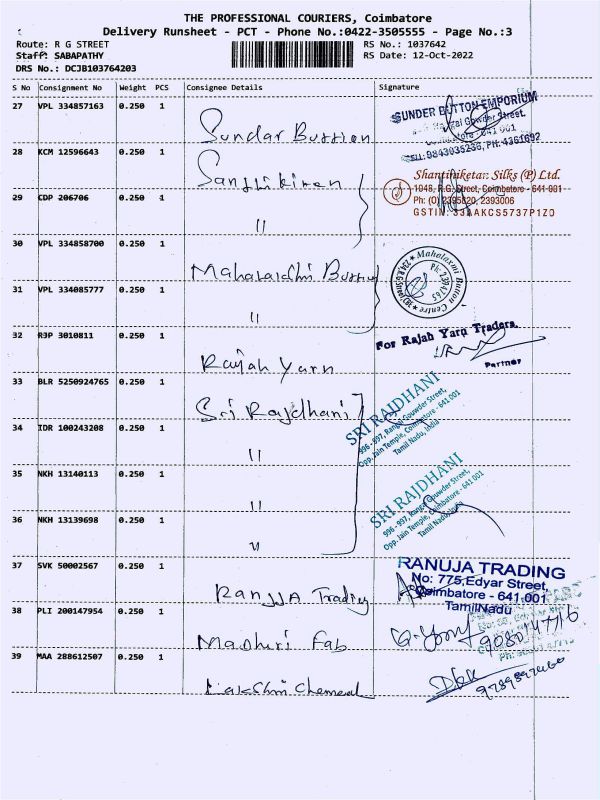 THE PROFESSIONAL COURIERS, Coimbatore
Delivery Runsheet - PCT - Phone No.:0422-3505555 - Page No.:3
Route: R G STREET
RS No.: 1037642
Staff: SABAPATHY
RS Date: 12-Oct-2022
DRS No.: DCJB103764203
S No Consignment No Weight PCS Consignee Details Signature
27 VPL 334857163 0.250 1
Sundar Button
SUNDER BUTTON EMPORIUM
Street,
641 001
PH: 4361692
28 KCM 12596643 0.250 1
Santhikiren
Shantiniketan Silks (P) Ltd.
1048, R.G. Street, Coimbatore - 641 001
Ph: (O) 2395820, 2393006
GSTIN: 33AAKCS5737P1ZD
29 CDP 206706 0.250 1
"
30 VPL 334858700 0.250 1
Button
Mahalaxmi Button Centre
Ph: 2394765
31 VPL 334085777 0.250 1
"
32 RJP 3010811 0.250 1
Rajah Yarn
For Rajah Yarn Traders,
Partner
33 BLR 5250924765 0.250 1
Sri Rajdhani
SRI RAJDHANI
996 - 997, Rangai Gowder Street,
Opp. Jain Temple, Coimbatore - 641 001
Tamil Nadu, India
34 IDR 100243208 0.250 1
"
35 NKH 13140113 0.250 1
"
SRI RAJDHANI
996 - 997, Rangai Gowder Street,
Opp. Jain Temple, Coimbatore - 641 001
Tamil Nadu, India
36 NKH 13139698 0.250 1
"
37 SVK 50002567 0.250 1
Ranjja Trading
RANUJA TRADING
No: 775, Edyar Street,
Coimbatore - 641 001
TamilNadu
38 PLI 200147954 0.250 1
Madhuri Fab
9080147716
39 MAA 288612507 0.250 1
Lakshmi Chemeal